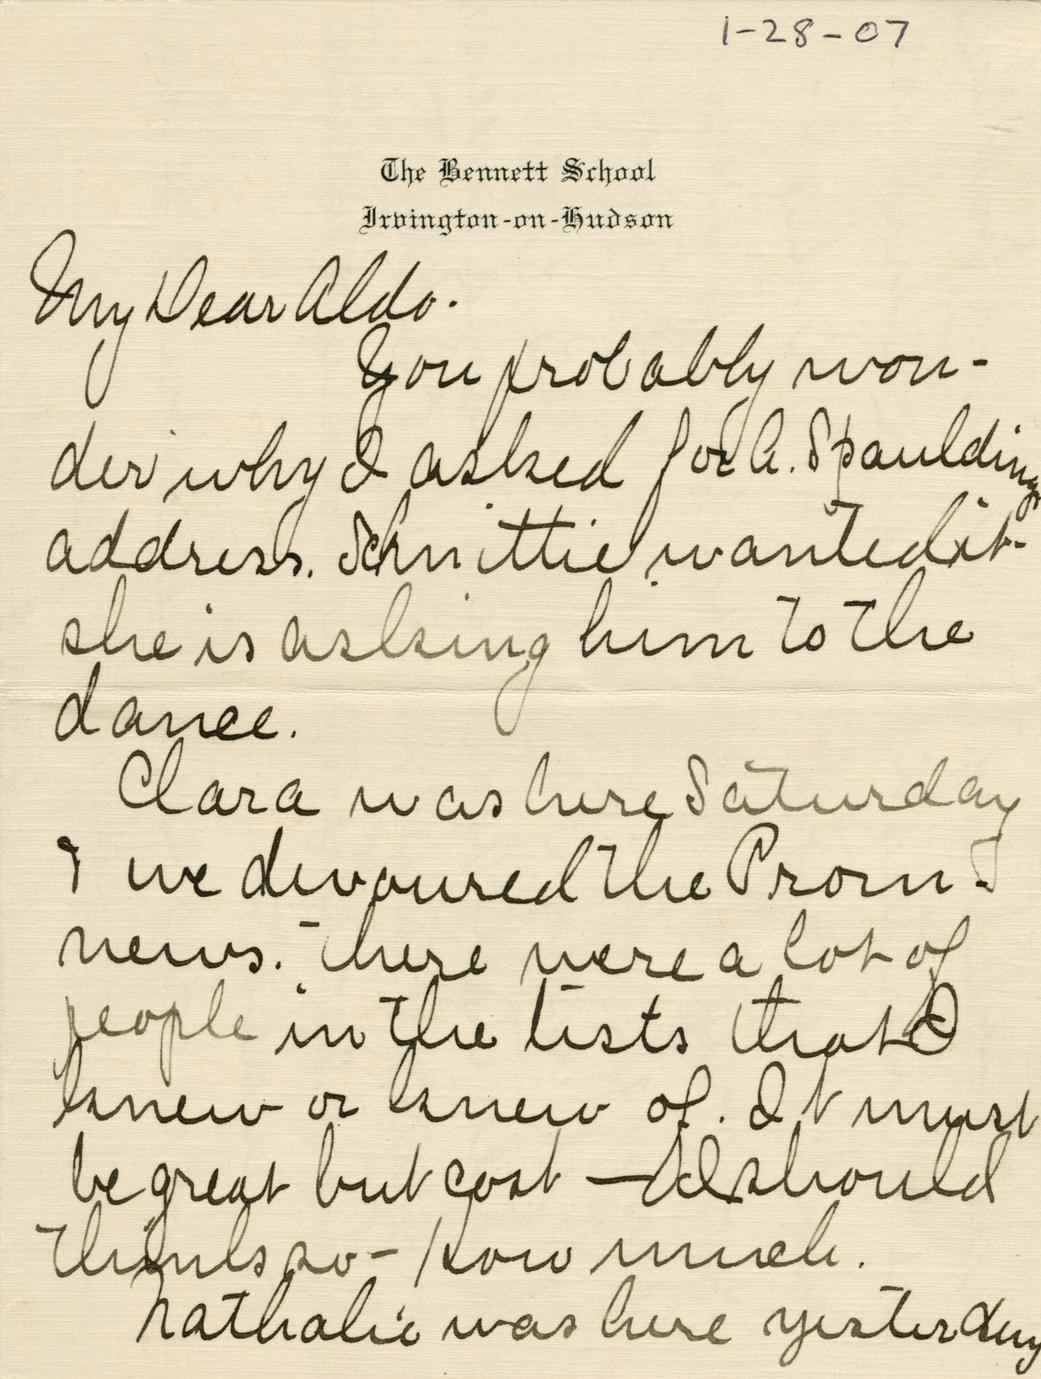 1-28-07
The Bennett School
Irvington-on-Hudson
My Dear Aldo.
You probably won-
der why I asked for A. Spauldings
address. Schmittie wanted it-
she is asking him to the
dance.
Clara was here Saturday
& we devoured the Prom.
news. There were a lot of
people in the lists that I
knew or knew of. It must
be great but cost — I should
think so - how much.
Nathalie was here yesterday